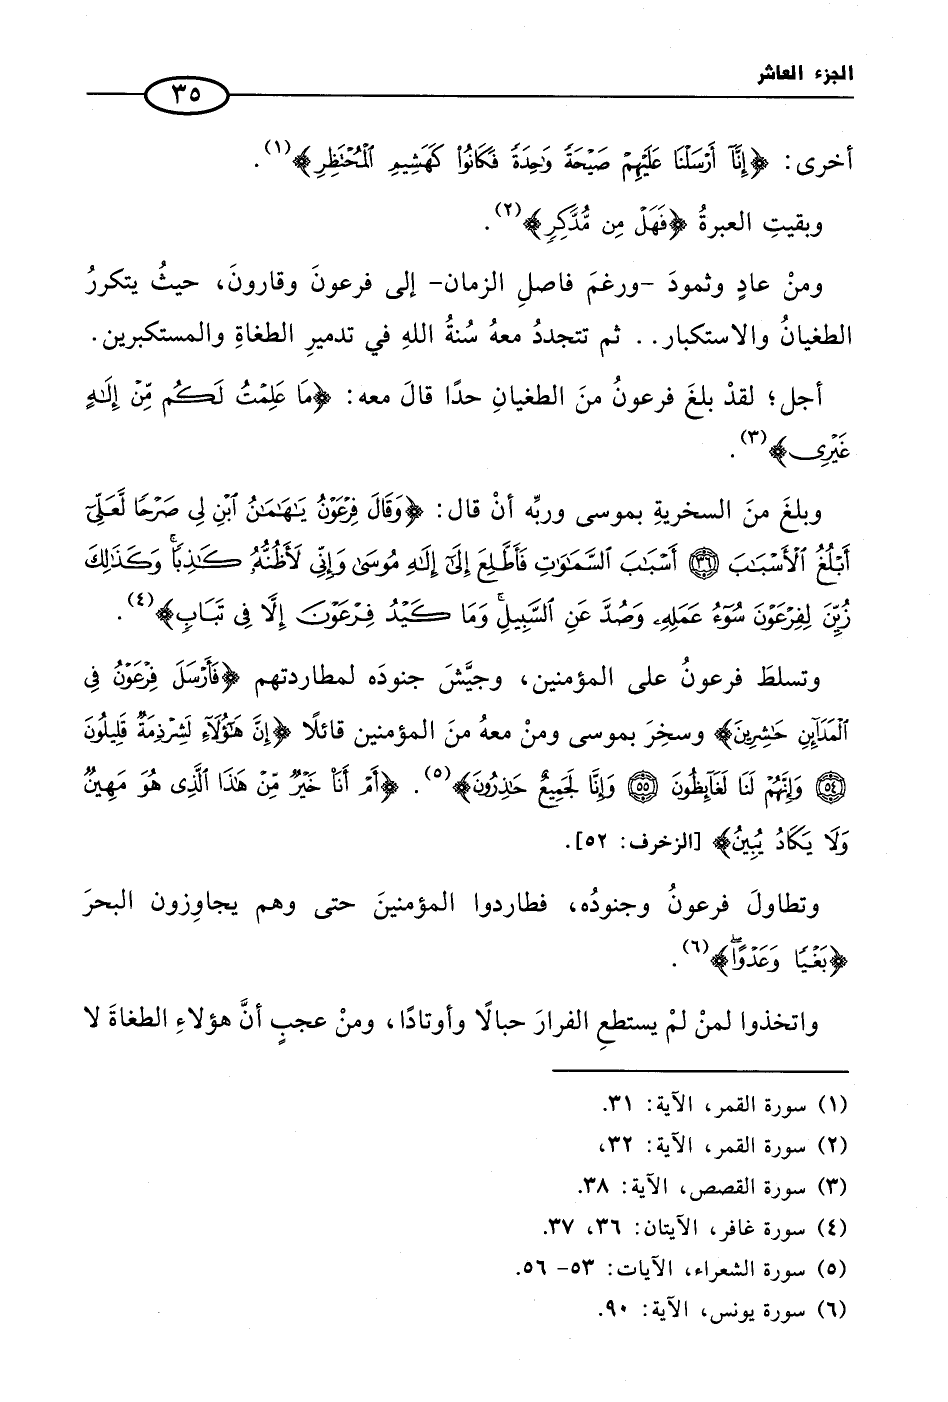 الجزء العاشر
٣٥
أخرى: ﴿إِنَّآ أَرْسَلْنَا عَلَيْهِمْ صَيْحَةً وَٰحِدَةً فَكَانُوا۟ كَهَشِيمِ ٱلْمُحْتَظِرِ﴾(١).
وبقيتِ العبرةُ ﴿فَهَلْ مِن مُّدَّكِرٍ﴾(٢).
ومنْ عادٍ وثمودَ -ورغمَ فاصلِ الزمان- إلى فرعونَ وقارونَ، حيثُ يتكررُ
الطغيانُ والاستكبار.. ثم تتجددُ معهُ سُنةُ اللهِ في تدميرِ الطغاةِ والمستكبرين.
أجل؛ لقدْ بلغَ فرعونُ منَ الطغيانِ حدًا قالَ معه: ﴿مَا عَلِمْتُ لَكُم مِّنْ إِلَٰهٍ
غَيْرِى﴾(٣).
وبلغَ منَ السخريةِ بموسى وربِّه أنْ قال: ﴿وَقَالَ فِرْعَوْنُ يَٰهَٰمَٰنُ ٱبْنِ لِى صَرْحًا لَّعَلِّىٓ
أَبْلُغُ ٱلْأَسْبَٰبَ ۝٣٦ أَسْبَٰبَ ٱلسَّمَٰوَٰتِ فَأَطَّلِعَ إِلَىٰٓ إِلَٰهِ مُوسَىٰ وَإِنِّى لَأَظُنُّهُۥ كَٰذِبًا ۚ وَكَذَٰلِكَ
زُيِّنَ لِفِرْعَوْنَ سُوٓءُ عَمَلِهِۦ وَصُدَّ عَنِ ٱلسَّبِيلِ ۚ وَمَا كَيْدُ فِرْعَوْنَ إِلَّا فِى تَبَابٍ﴾(٤).
وتسلطَ فرعونُ على المؤمنين، وجيَّشَ جنودَه لمطاردتهم ﴿فَأَرْسَلَ فِرْعَوْنُ فِى
ٱلْمَدَآئِنِ حَٰشِرِينَ﴾ وسخِرَ بموسى ومنْ معهُ منَ المؤمنين قائلًا ﴿إِنَّ هَٰٓؤُلَآءِ لَشِرْذِمَةٌ قَلِيلُونَ
۝٥٤ وَإِنَّهُمْ لَنَا لَغَآئِظُونَ ۝٥٥ وَإِنَّا لَجَمِيعٌ حَٰذِرُونَ﴾(٥). ﴿أَمْ أَنَا۠ خَيْرٌ مِّنْ هَٰذَا ٱلَّذِى هُوَ مَهِينٌ
وَلَا يَكَادُ يُبِينُ﴾ [الزخرف: ٥٢].
وتطاولَ فرعونُ وجنودُه، فطاردوا المؤمنينَ حتى وهم يجاوِزون البحرَ
﴿بَغْيًا وَعَدْوًا ۖ﴾(٦).
واتخذوا لمنْ لمْ يستطعِ الفرارَ حبالًا وأوتادًا، ومنْ عجبٍ أنَّ هؤلاءِ الطغاةَ لا
(١) سورة القمر، الآية: ٣١.
(٢) سورة القمر، الآية: ٣٢،
(٣) سورة القصص، الآية: ٣٨.
(٤) سورة غافر، الآيتان: ٣٦، ٣٧.
(٥) سورة الشعراء، الآيات: ٥٣- ٥٦.
(٦) سورة يونس، الآية: ٩٠.